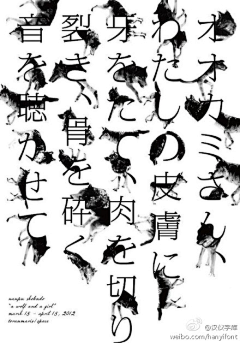 オオカミさん、
わたしの皮膚に
牙をたて、肉を切り
裂き、骨を砕く
音を聴かせて
"a wolf and a girl"
march 15 - april 15, 2012
@汉仪字库
weibo.com/hanyifont